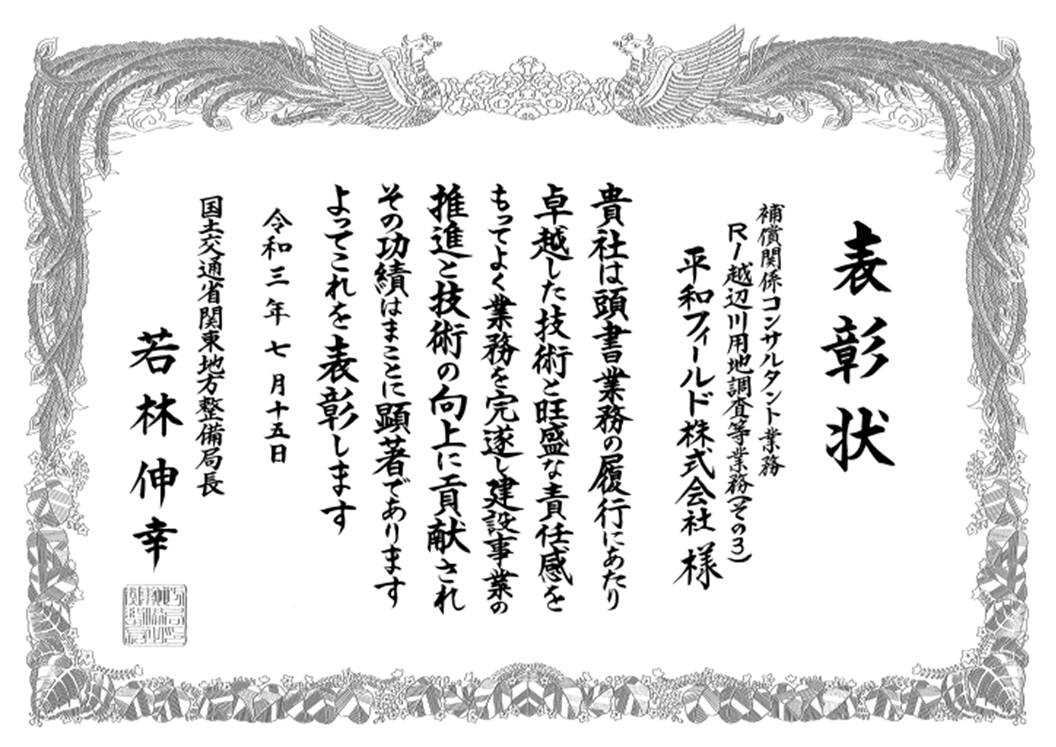 表彰状
補償関係コンサルタント業務
R1越辺川用地調査等業務(その3)
平和フィールド株式会社 様
貴社は頭書業務の履行にあたり
卓越した技術と旺盛な責任感を
もってよく業務を完遂し建設事業の
推進と技術の向上に貢献され
その功績はまことに顕著であります
よってこれを表彰します
令和三年七月十五日
国土交通省関東地方整備局長
若林伸幸